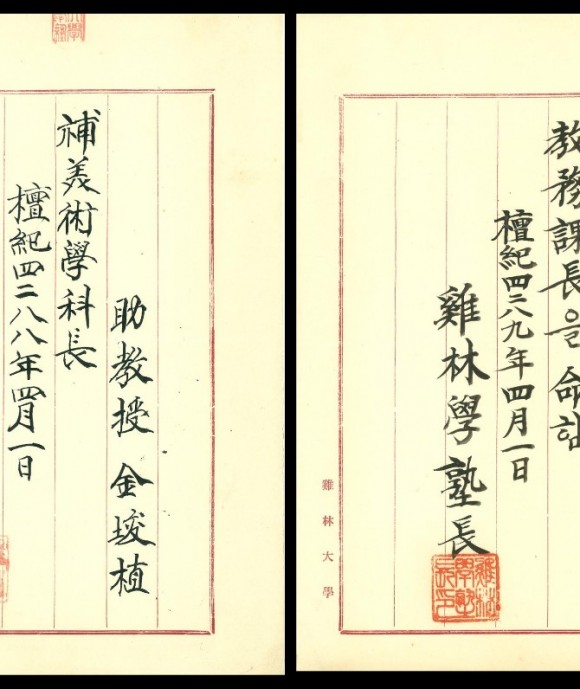 助教授 金埈植
補美術學科長
檀紀四二八八年四月一日
教務課長을 命함
檀紀四二八九年四月一日
雞林學塾長
雞林學塾長印
雞林大學